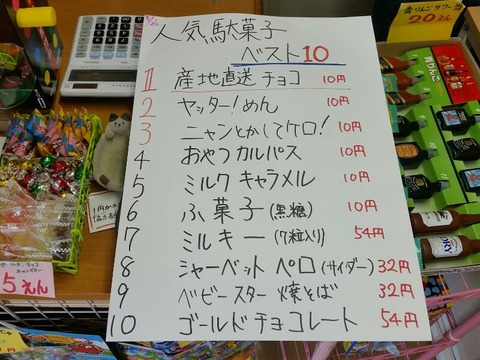 人気駄菓子
ベスト10
1 産地直送チョコ 10円
2 ヤッター!めん 10円
3 ニャンとかしてケロ! 10円
4 おやつカルパス 10円
5 ミルクキャラメル 10円
6 ふ菓子(黒糖) 10円
7 ミルキー(7粒入り) 54円
8 シャーベットペロ(サイダー) 32円
9 ベビースター焼そば 32円
10 ゴールドチョコレート 54円
5えん
りんごサワー
20えん